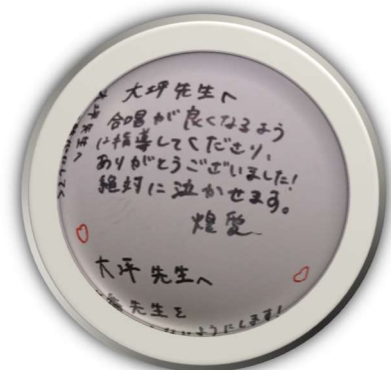 大坪先生へ
合唱が良くなるよう
に指導してくださり、
ありがとうございました!
絶対に泣かせます。
煌愛
大坪先生へ
先生を
ないようにします!